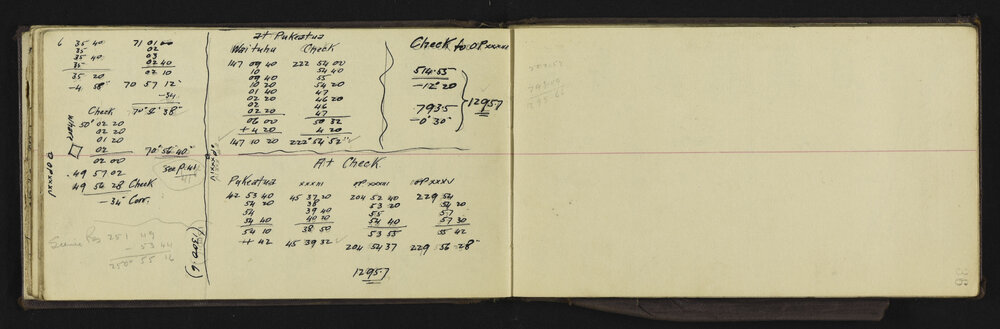 6 35 40 71 01 40
35 02
35 40 03
35 02 40
35 20 02 10
-4 58" 70 57 12
-34
Check 70° 56' 38"
50° 02 20
02 20
01 20
02 70° 56' 40"
02 00 see p. 41
49 57 02
49 56 28 Check
-34" Corr.
251 49
- 53 44
250° 55 16
at Pukeatua
Waituhu Check
147 09 40 222 54 00
10 54 40
09 40 55
10 20 54 20
01 40 47
02 20 46 20
02 46
02 20 47
06 00 50 32
+ 4 20 4 20
147 10 20 222° 54' 52"
Check to OP xxxiii
514.55
-12' 20
793.5
-0' 30"
1295.7
At Check
Pukeatua xxxiii OP xxxiii OP xxxv
42 53 40 45 37 20 204 52 40 229 54
54 20 38 53 20 54 20
54 39 40 55 57
54 40 40 20 54 40 57 30
54 10 38 50 53 55 55 42
+ 42 45 39 32 204 54 37 229 56 28"
1295.7
OP xxxiv
(1300.6)
36